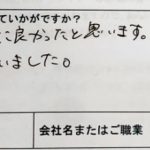 ていかがですか？
に良かったと思います。
いました。
会社名またはご職業